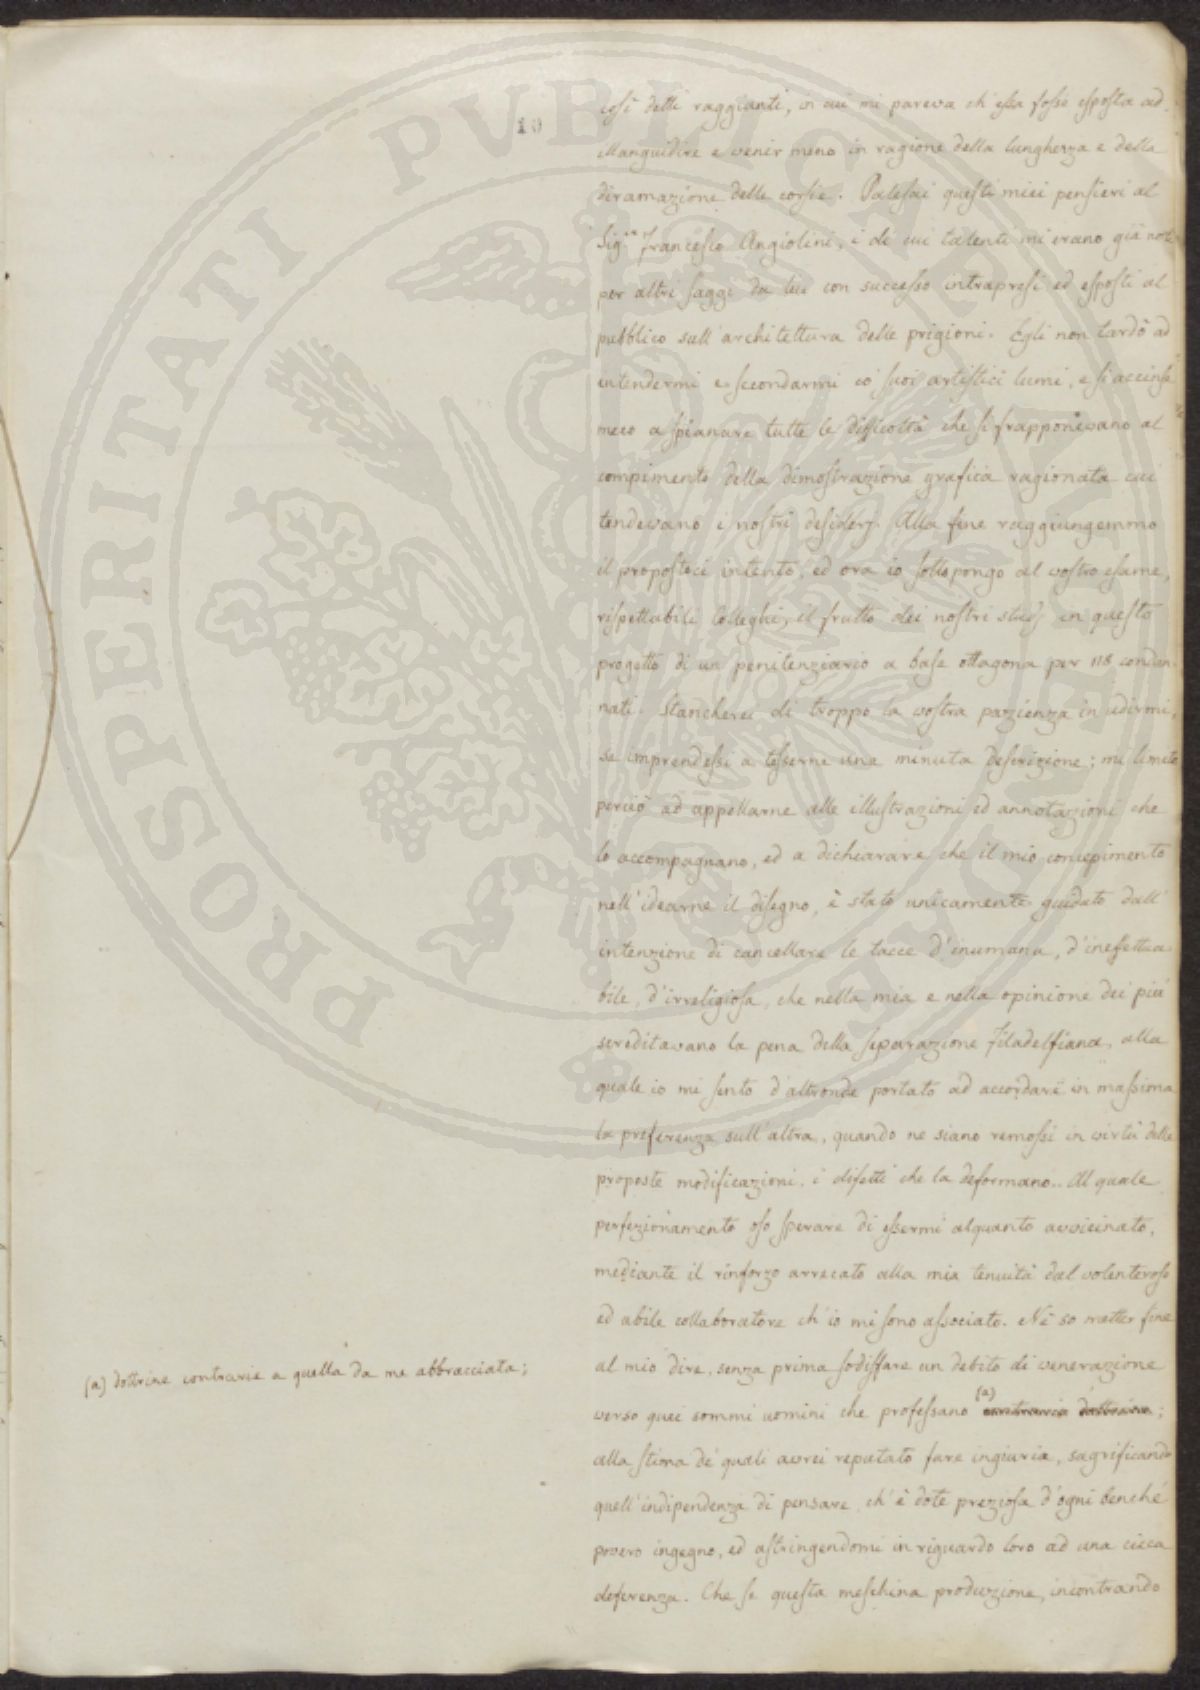 10
così detti raggianti, in cui mi pareva ch'essa fosse esposta ad
illanguidire e venir meno in ragione della lunghezza e della
diramazione delle corsie. Palesai questi miei pensieri al
Sig.re Francesco Angiolini, i di cui talenti mi erano già noti
per altri saggi da lui con successo intrapresi ed esposti al
pubblico sull'architettura delle prigioni. Egli non tardò ad
intendermi e secondarmi co' suoi artistici lumi, e si accinse
meco a spianare tutte le difficoltà che si frapponevano al
compimento della dimostrazione grafica ragionata cui
tendevano i nostri desiderj. Alla fine raggiungemmo
il propostoci intento, ed ora io sottopongo al vostro esame,
rispettabili Colleghi, il frutto dei nostri studj in questo
progetto di un penitenziario a base ottagona per 118 condan-
nati. Stancherei di troppo la vostra pazienza in udirmi,
se imprendessi a tesserne una minuta descrizione; mi limito
perciò ad appellarne alle illustrazioni ed annotazioni che
lo accompagnano, ed a dichiarare che il mio concepimento
nell'idearne il disegno, è stato unicamente guidato dall'
intenzione di cancellare le tacce d'inumana, d'ineffettua-
bile, d'irreligiosa, che nella mia e nella opinione dei più
screditavano la pena della separazione Filadelfiana, alla
quale io mi sento d'altronde portato ad accordare in massima
la preferenza sull'altra, quando ne siano remossi in virtù delle
proposte modificazioni, i difetti che la deformano. Al quale
perfezionamento oso sperare di essermi alquanto avvicinato,
mediante il rinforzo arrecato alla mia tenuità dal volenteroso
ed abile collaboratore ch'io mi sono associato. Nè so metter fine
al mio dire, senza prima sodisfare un debito di venerazione
verso quei sommi uomini che professano (a) contraria dottrina;
(a) dottrine contrarie a quella da me abbracciata;
alla stima de' quali avrei reputato fare ingiuria, sagrificando
quell'indipendenza di pensare, ch'è dote preziosa d'ogni benché
povero ingegno, ed astringendomi in riguardo loro ad una cieca
deferenza. Che se questa meschina produzione, incontrando
PROSPERITATI PUBLICAE